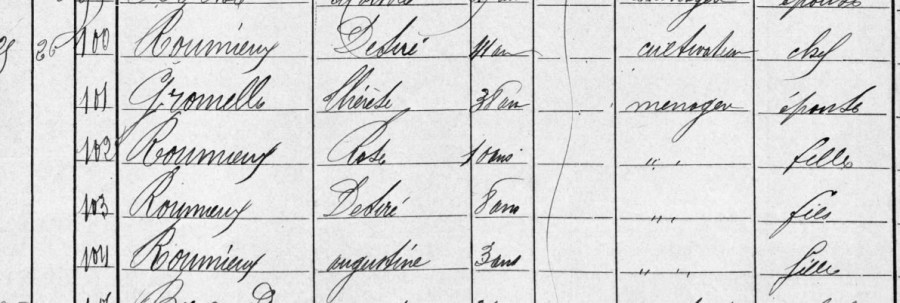 26 100 Roumieux Desiré 41 an cultivateur chef
101 Gromelle Thérèse 38 an menager épouse
102 Roumieux Rose 10 ans " " fille
103 Roumieux Desiré 8 ans " " fils
104 Roumieux augustine 3 ans " " fille